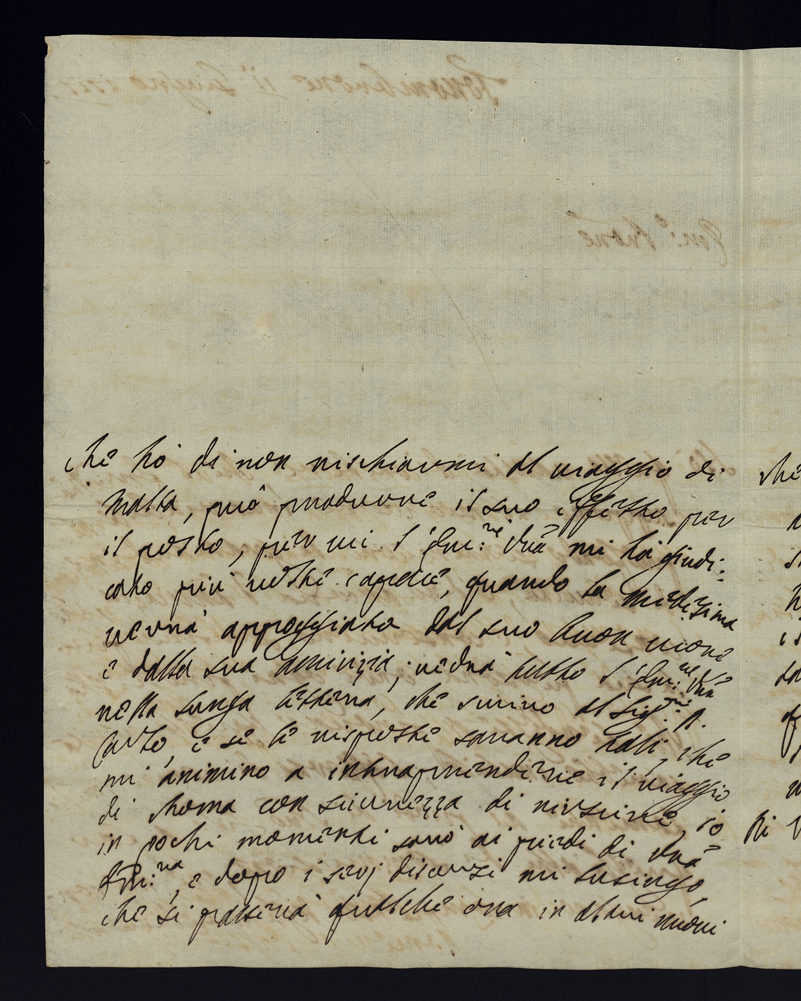 che ho di non rischiarmi al viaggio di
Malta, può produrre il suo effetto per
il posto, per cui l'Em.ᶻᵃ Vrã mi ha giudi:
cato più volte capace, quando la medesima
verrà appoggiata dal suo buon cuore
e dalla sua amicizia; vedrà tutto l'Em.ᶻᵃ Vrã
nella lunga lettera, che scrivo al Sig.ʳᵉ A.
Carlo, e se le risposte saranno tali, che
mi animino a intraprendere il viaggio
di Roma con sicurezza di riuscire, io
in pochi momenti sarò ai piedi di Vrã
Em.ᶻᵃ, e dopo i serj discorsi mi lusingo,
che si passerà qualche ora in altri